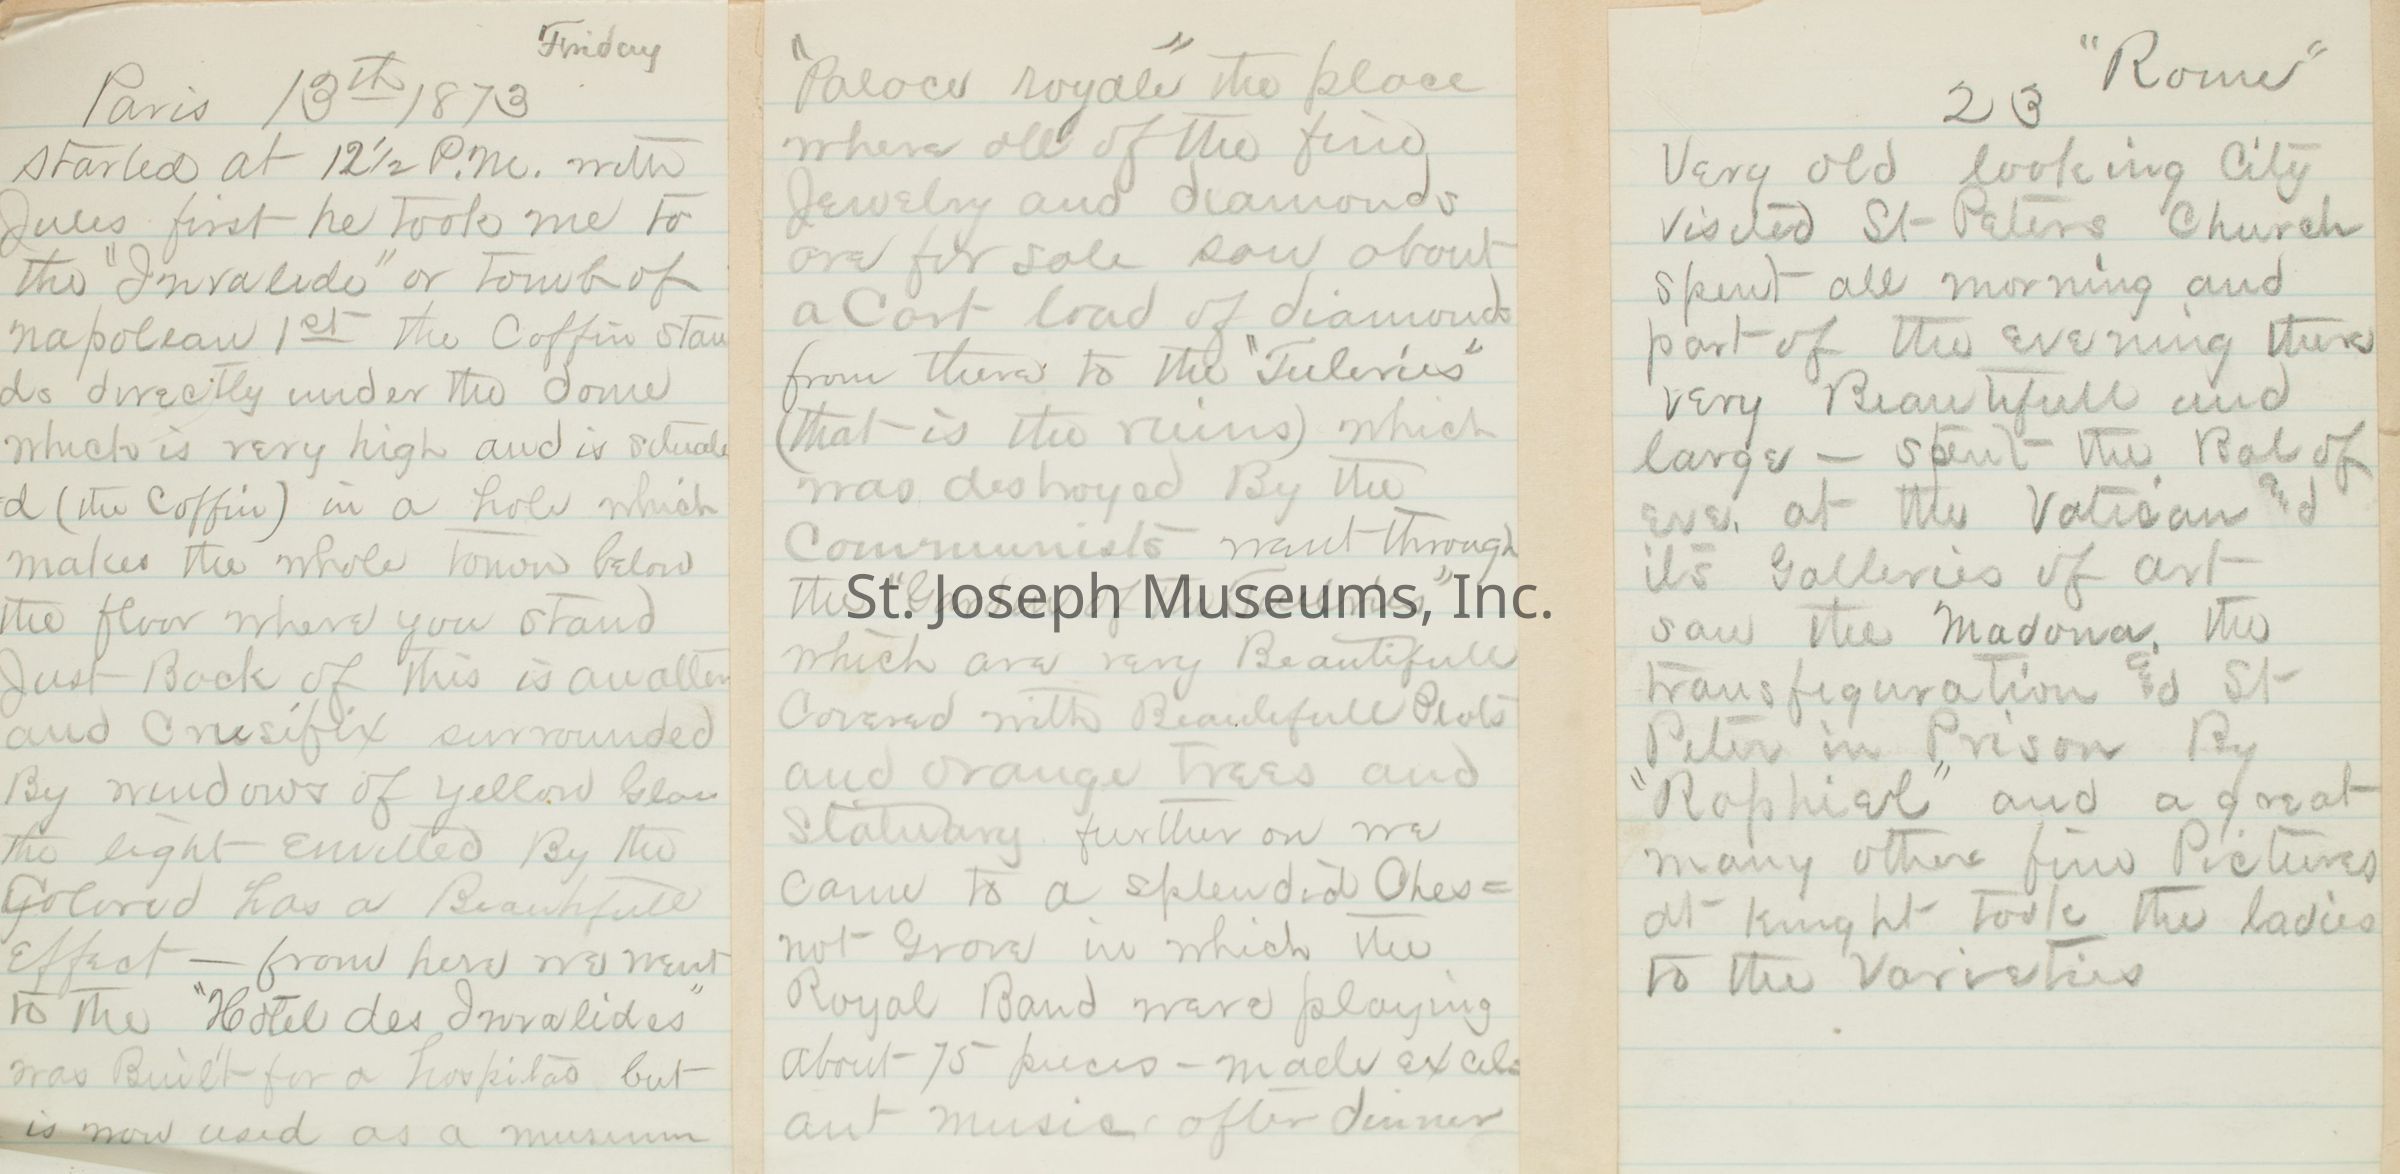 Friday
Paris 13th 1873
started at 12½ P.M. with
Jules first he took me to
the "Invalide" or tomb of
Napolean 1st the Coffin stan
ds directly under the dome
which is very high and is situate
d (the Coffin) in a hole which
makes the whole down below
the floor where you stand
Just Back of this is an alter
and Crusifix surrounded
By windows of yellow Glass
the light Emitted By the
Colored has a Beautifull
Effect — from here we went
to the "Hotel des Invalides"
was Built for a hospital but
is now used as a museum
"Palace royale" the place
where all of the fine
Jewelry and diamonds
are for sale saw about
a Cart load of diamonds
from there to the "Tuleries"
(that is the ruins) which
was destroyed By the
Communists went through
the "Garden of the Tuleries"
which are very Beautifull
Covered with Beautifull Plots
and orange trees and
Statuary further on we
came to a splendid Ches=
not Grove in which the
Royal Band were playing
about 75 pieces – made excele
ant music after dinner
"Rome"
23
Very old looking City
visited St Peters Church
spent all morning and
part of the evening there
very Beautifull and
large — spent the Bal of
eve. at the Vatican and
its Galleries of art
saw the Madona, the
transfiguration and St
Peter in Prison By
"Raphiel" and a great
many other fine Pictures
at knight took the ladies
to the Varieties
St. Joseph Museums, Inc.